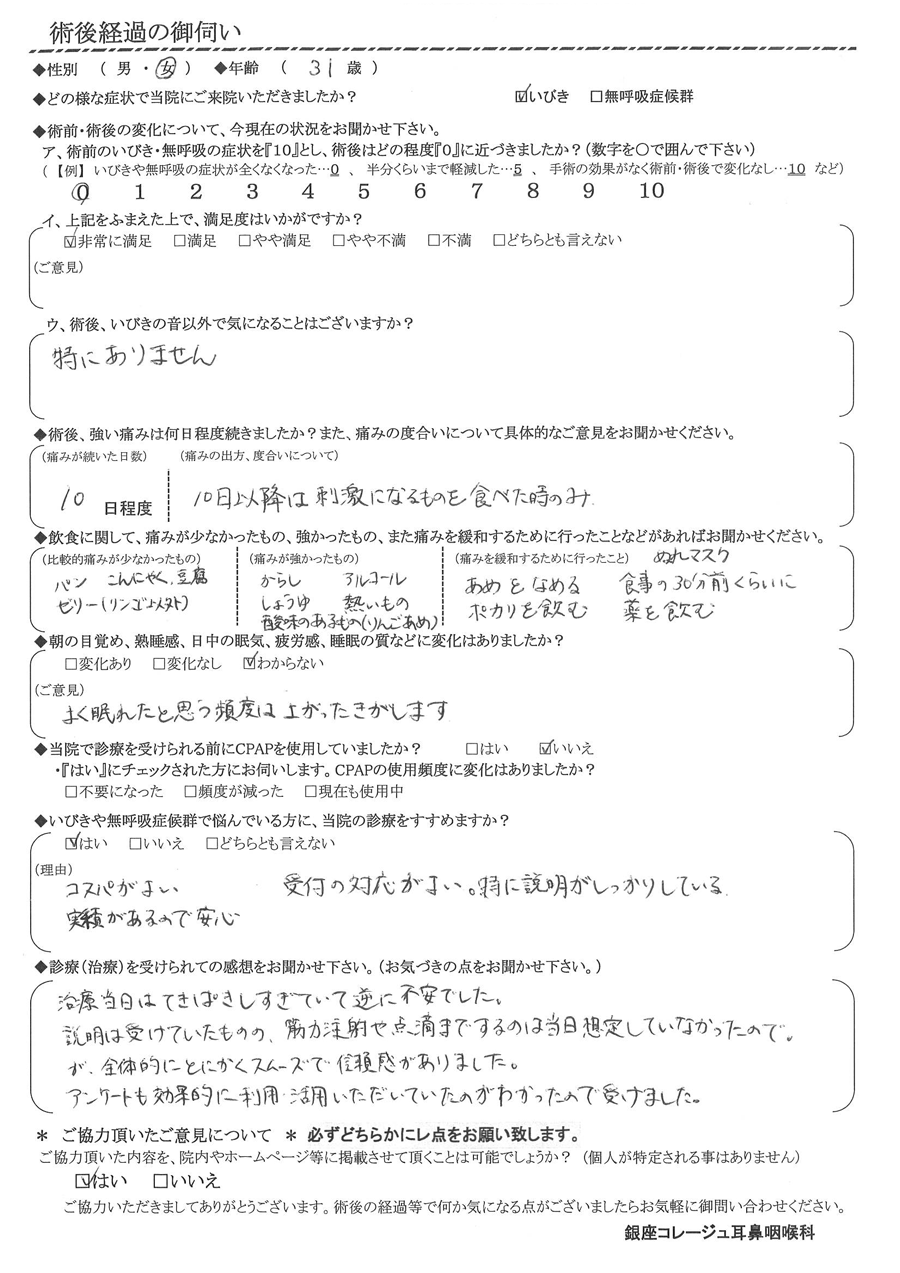 術後経過の御伺い
◆性別 ( 男 ・ 女 ) ◆年齢 ( 31 歳 )
◆どの様な症状で当院にご来院いただきましたか? ☑いびき □無呼吸症候群
◆術前・術後の変化について、今現在の状況をお聞かせ下さい。
ア、術前のいびき・無呼吸の症状を『10』とし、術後はどの程度『0』に近づきましたか?(数字を○で囲んで下さい)
(【例】いびきや無呼吸の症状が全くなくなった…0 、 半分くらいまで軽減した…5 、 手術の効果がなく術前・術後で変化なし…10 など)
0 1 2 3 4 5 6 7 8 9 10
イ、上記をふまえた上で、満足度はいかがですか?
☑非常に満足 □満足 □やや満足 □やや不満 □不満 □どちらとも言えない
(ご意見)
ウ、術後、いびきの音以外で気になることはございますか?
特にありません
◆術後、強い痛みは何日程度続きましたか?また、痛みの度合いについて具体的なご意見をお聞かせください。
(痛みが続いた日数) (痛みの出方、度合いについて)
10 日程度 10日以降は刺激になるものを食べた時のみ.
◆飲食に関して、痛みが少なかったもの、強かったもの、また痛みを緩和するために行ったことなどがあればお聞かせください。
(比較的痛みが少なかったもの) (痛みが強かったもの) (痛みを緩和するために行ったこと) ぬれマスク
パン こんにゃく、豆腐 からし アルコール あめをなめる 食事の30分前くらいに
ゼリー(リンゴ しょうゆ 熱いもの ポカリを飲む 薬を飲む
酸味のあるもの(りんごあめ)
◆朝の目覚め、熟睡感、日中の眠気、疲労感、睡眠の質などに変化はありましたか?
□変化あり □変化なし ☑わからない
(ご意見)
よく眠れたと思う頻度は上がったきがします
◆当院で診療を受けられる前にCPAPを使用していましたか? □はい ☑いいえ
・『はい』にチェックされた方にお伺いします。CPAPの使用頻度に変化はありましたか?
□不要になった □頻度が減った □現在も使用中
◆いびきや無呼吸症候群で悩んでいる方に、当院の診療をすすめますか?
☑はい □いいえ □どちらとも言えない
(理由)
コスパがよい 受付の対応がよい。特に説明がしっかりしている.
実績があるので安心
◆診療(治療)を受けられての感想をお聞かせ下さい。(お気づきの点をお聞かせ下さい。)
治療当日はてきぱきしすぎていて逆に不安でした。
説明は受けていたものの、筋力注射や点滴までするのは当日想定していなかったので。
が、全体的にとにかくスムーズで信頼感がありました。
アンケートも効果的に利用・活用いただいていたのがわかったので受けました。
* ご協力頂いたご意見について * 必ずどちらかにレ点をお願い致します。
ご協力頂いた内容を、院内やホームページ等に掲載させて頂くことは可能でしょうか? (個人が特定される事はありません)
☑はい □いいえ
ご協力いただきましてありがとうございます。術後の経過等で何か気になる点がございましたらお気軽に御問い合わせください。
銀座コレージュ耳鼻咽喉科